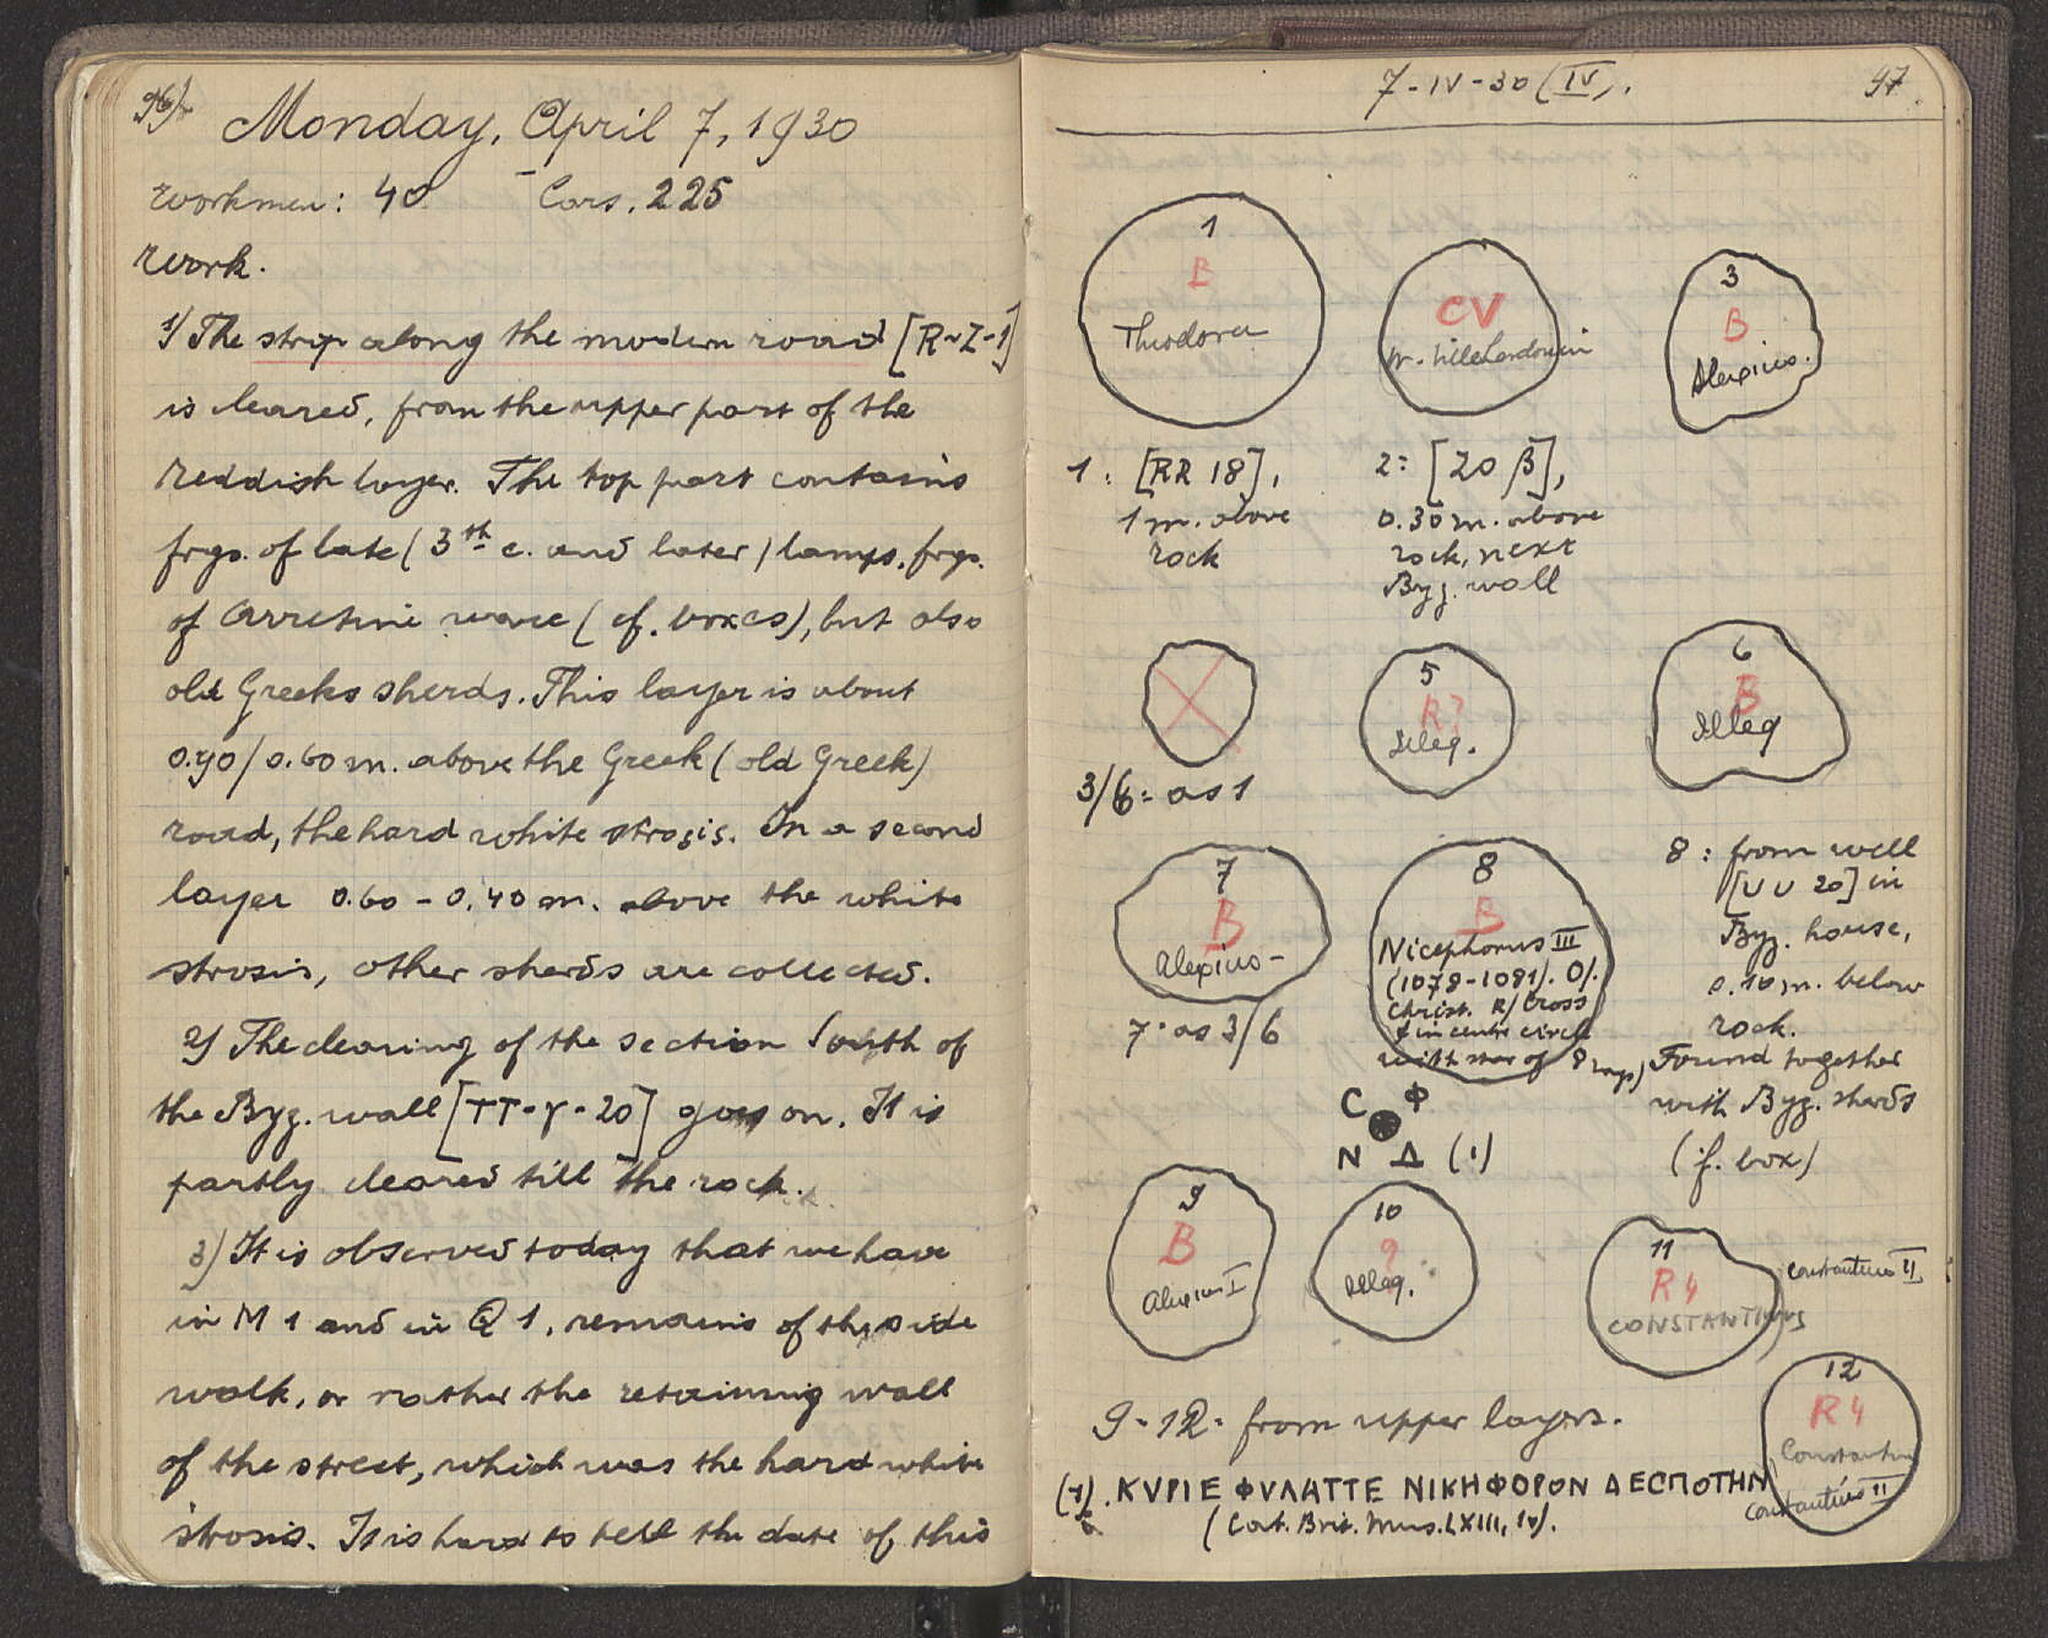 96)
Monday, April 7, 1930
Workmen: 40 Cars. 225
Work.
1) The strip along the modern road [R-Z-1]
is cleared, from the upper part of the
reddish layer. The top part contains
frgs. of late (3th c. and later) lamps, frgs.
of Arretine ware (cf. boxes), but also
old Greeks sherds. This layer is about
0.90/0.60 m. above the Greek (old Greek)
road, the hard white strosis. In a second
layer 0.60 - 0.40 m. above the white
strosis, other sherds are collected.
2) The clearing of the section South of
the Byz. wall [TT-γ-20] goes on. It is
partly cleared till the rock.
3) It is observed today that we have
in M 1 and in Q 1, remains of the side
walk, or rather the retaining wall
of the street, which was the hard white
strosis. It is hard to tell the date of this
7-IV-30 (IV). 97
1
B
Theodora
CV
W. Villehardouin
3
B
Alexius.
1: [RR 18],
1 m. above
rock
2: [20 β],
0.30 m. above
rock, next
Byz. wall
5
R?
Illeg.
6
B
Illeg
3/6: as 1
7
B
Alexius-
7: as 3/6
8
B
Nicephorus III
(1078-1081). O/.
Christ. R/ Cross
+ in centre circle
with star of 8 rays)
C Φ
N Δ (1)
8: from well
[UU 20] in
Byz. house,
0.10 m. below
rock.
Found together
with Byz. sherds
(cf. box)
9
B
Alexius I
10
?
Illeg.
11
R 4
CONSTANTINUS
Constantius II
12
R 4
Constantin
Constantius II
9-12: from upper layers.
(1). ΚΥΡΙΕ ΦΥΛΑΤΤΕ ΝΙΚΗΦΟΡΟΝ ΔΕСΠΟΤΗΝ
(Cat. Brit. Mus. LXIII, 10).